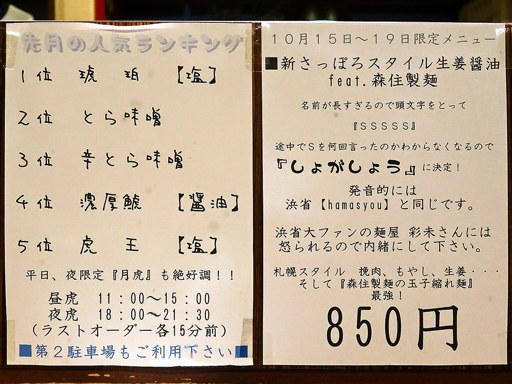 先月の人気ランキング
1位 琥珀 【塩】
2位 とら味噌
3位 辛とら味噌
4位 濃厚鯱 【醤油】
5位 虎王 【塩】
平日、夜限定『月虎』も絶好調！！
昼虎 11：00～15：00
夜虎 18：00～21：30
（ラストオーダー各15分前）
■第２駐車場もご利用下さい■
１０月１５日～１９日限定メニュー
■新さっぽろスタイル生姜醤油
feat.森住製麺
名前が長すぎるので頭文字をとって
『ＳＳＳＳＳ』
途中でＳを何回言ったのかわからなくなるので
『しょがしょう』に決定！
発音的には
浜省【hamasyou】と同じです。
浜省大ファンの麺屋 彩未さんには
怒られるので内緒にして下さい。
札幌スタイル 挽肉、もやし、生姜・・・
そして『森住製麺の玉子縮れ麺』
最強！
850円